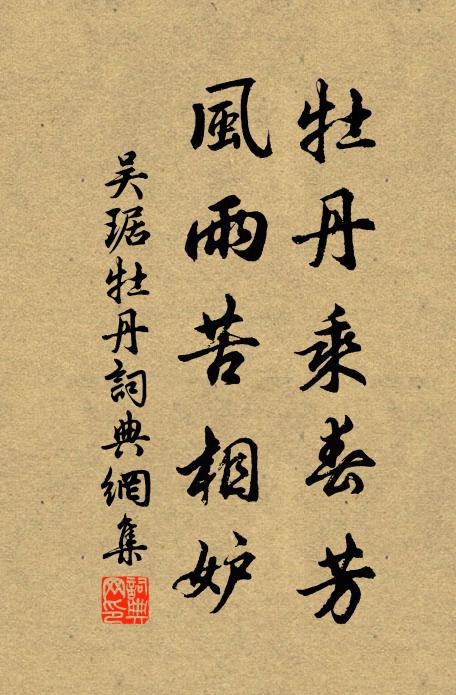 牡丹乘春芳
風雨苦相妒
吴琚牡丹詞典網集
詞典網印